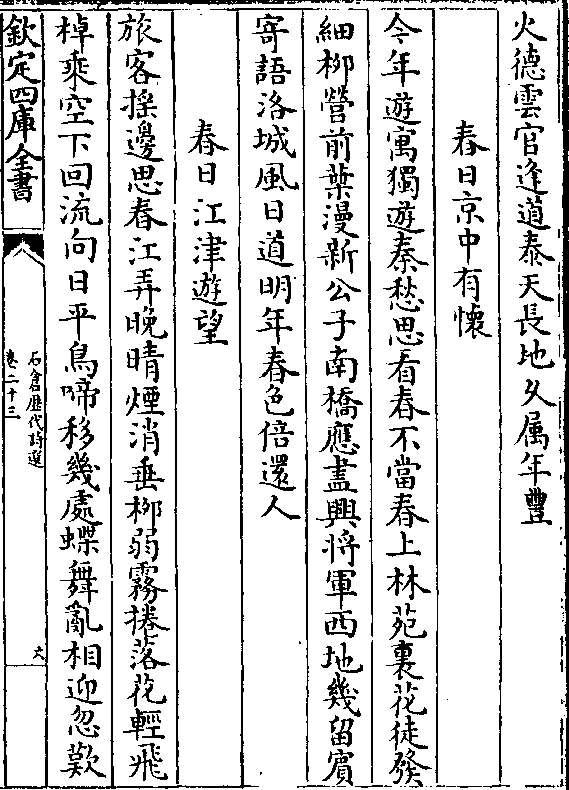 火德雲官逢道泰天長地久属年豐
春日京中有懷
今年遊寓獨遊秦愁思看春不當春上林苑裏花徒發
細柳營前葉漫新公子南橋應盡興將軍西地幾留賓
寄語洛城風日道明年春色倍還人
春日江津遊望
旅客揺邊思春江弄晚晴煙消垂柳弱霧捲落花輕飛
棹乘空下回流向日平鳥啼移幾處蝶舞亂相迎忽歎
欽定四庫全書
石倉歴代詩選
卷二十三